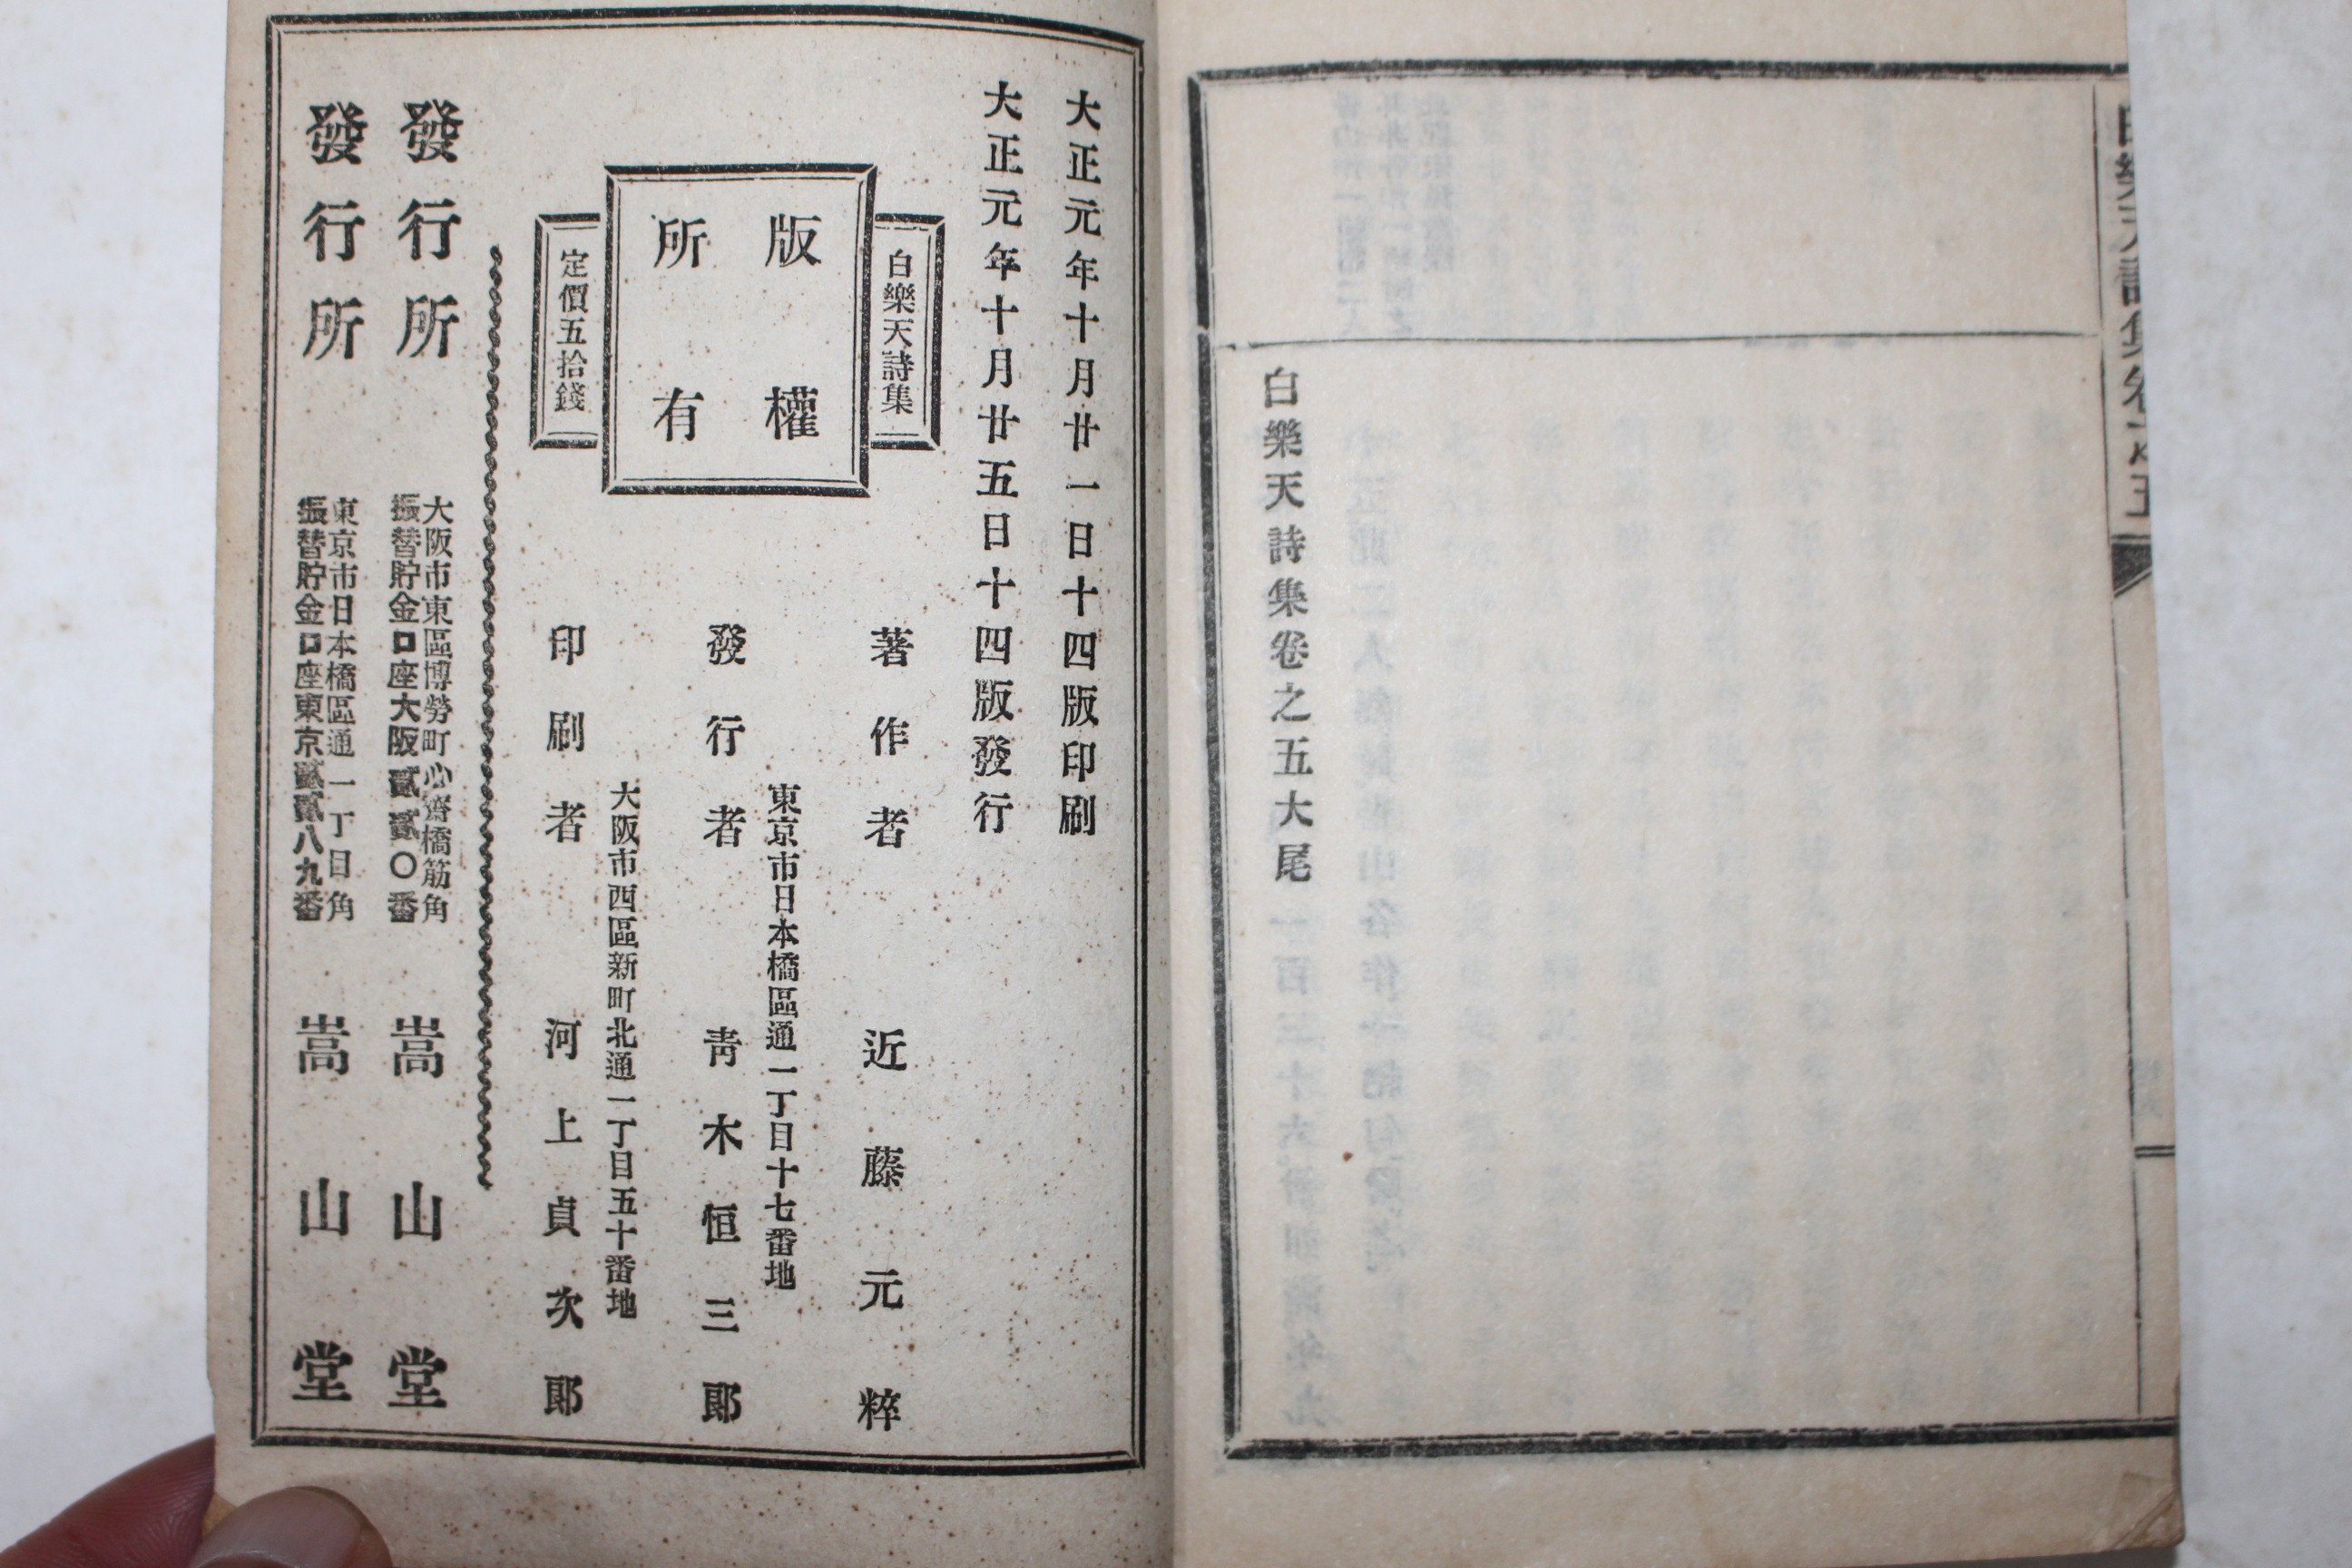 白樂天詩集卷之五
白樂天詩集卷之五大尾
大正元年十月廿一日十四版印刷
大正元年十月廿五日十四版發行
白樂天詩集
版權
所有
定價五拾錢
著作者 近藤元粹
東京市日本橋區通一丁目十七番地
發行者 靑木恒三郞
大阪市西區新町北通一丁目五十番地
印刷者 河上貞次郞
發行所 大阪市東區博勞町心齋橋筋角 嵩山堂
振替貯金口座大阪貳貳〇番
發行所 東京市日本橋區通一丁目角 嵩山堂
振替貯金口座東京貳貳八九番